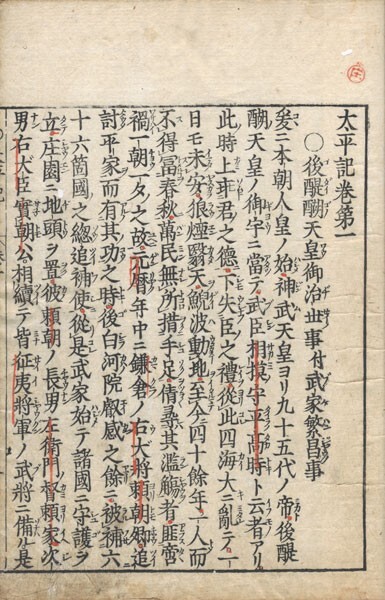 太平記卷第一
〇後醍醐天皇御治世事付武家繁昌事
爰ニ本朝人皇ノ始神武天皇ヨリ九十五代ノ帝後醍
醐天皇ノ御宇ニ當テ武臣相摸守平高時ト云者アリ
此時上乖君之德下失臣之禮從此四海大ニ亂テ一
日モ未安狼煙翳天鯢波動地至今四十餘年一人而
不得冨春秋萬民無所措手足倩尋其濫觴者匪啻
禍一朝一夕之故元曆年中ニ鎌倉ノ右大將賴朝卿追
討平家而有其功之時後白河院叡感之餘被補六
十六箇國之總追補使從是武家始テ諸國ニ守護ヲ
立庄園ニ地頭ヲ置彼賴朝ノ長男左衛門督賴家次
男右大臣實朝公相續テ皆征夷將軍ノ武將ニ備ル是